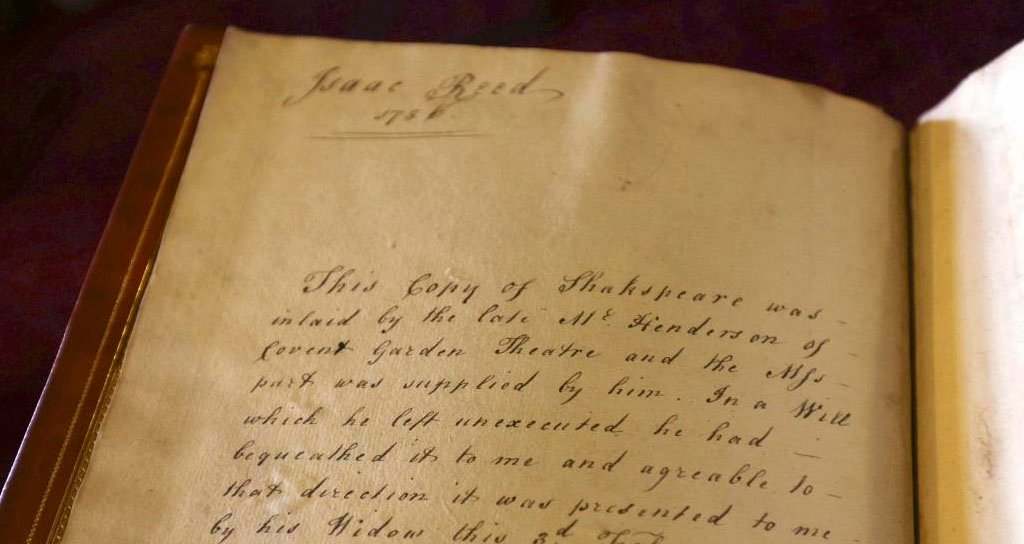 Isaac Reed
1786.
This Copy of Shakspeare was
inlaid by the late Mr Henderson of
Covent Garden Theatre and the Mss
part was supplied by him. In a Will
which he left unexecuted he had
bequeathed it to me and agreable to
that direction it was presented to me
by his Widow this 3d of